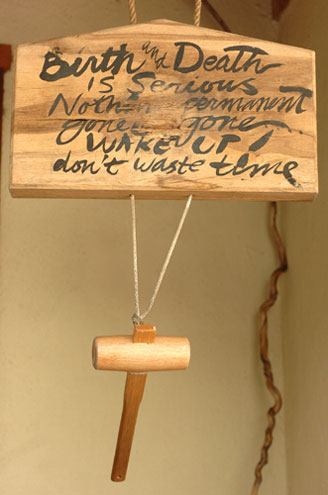 Birth and Death
is Serious
Nothin permanent
gone gone
WAKE UP!
don't waste time